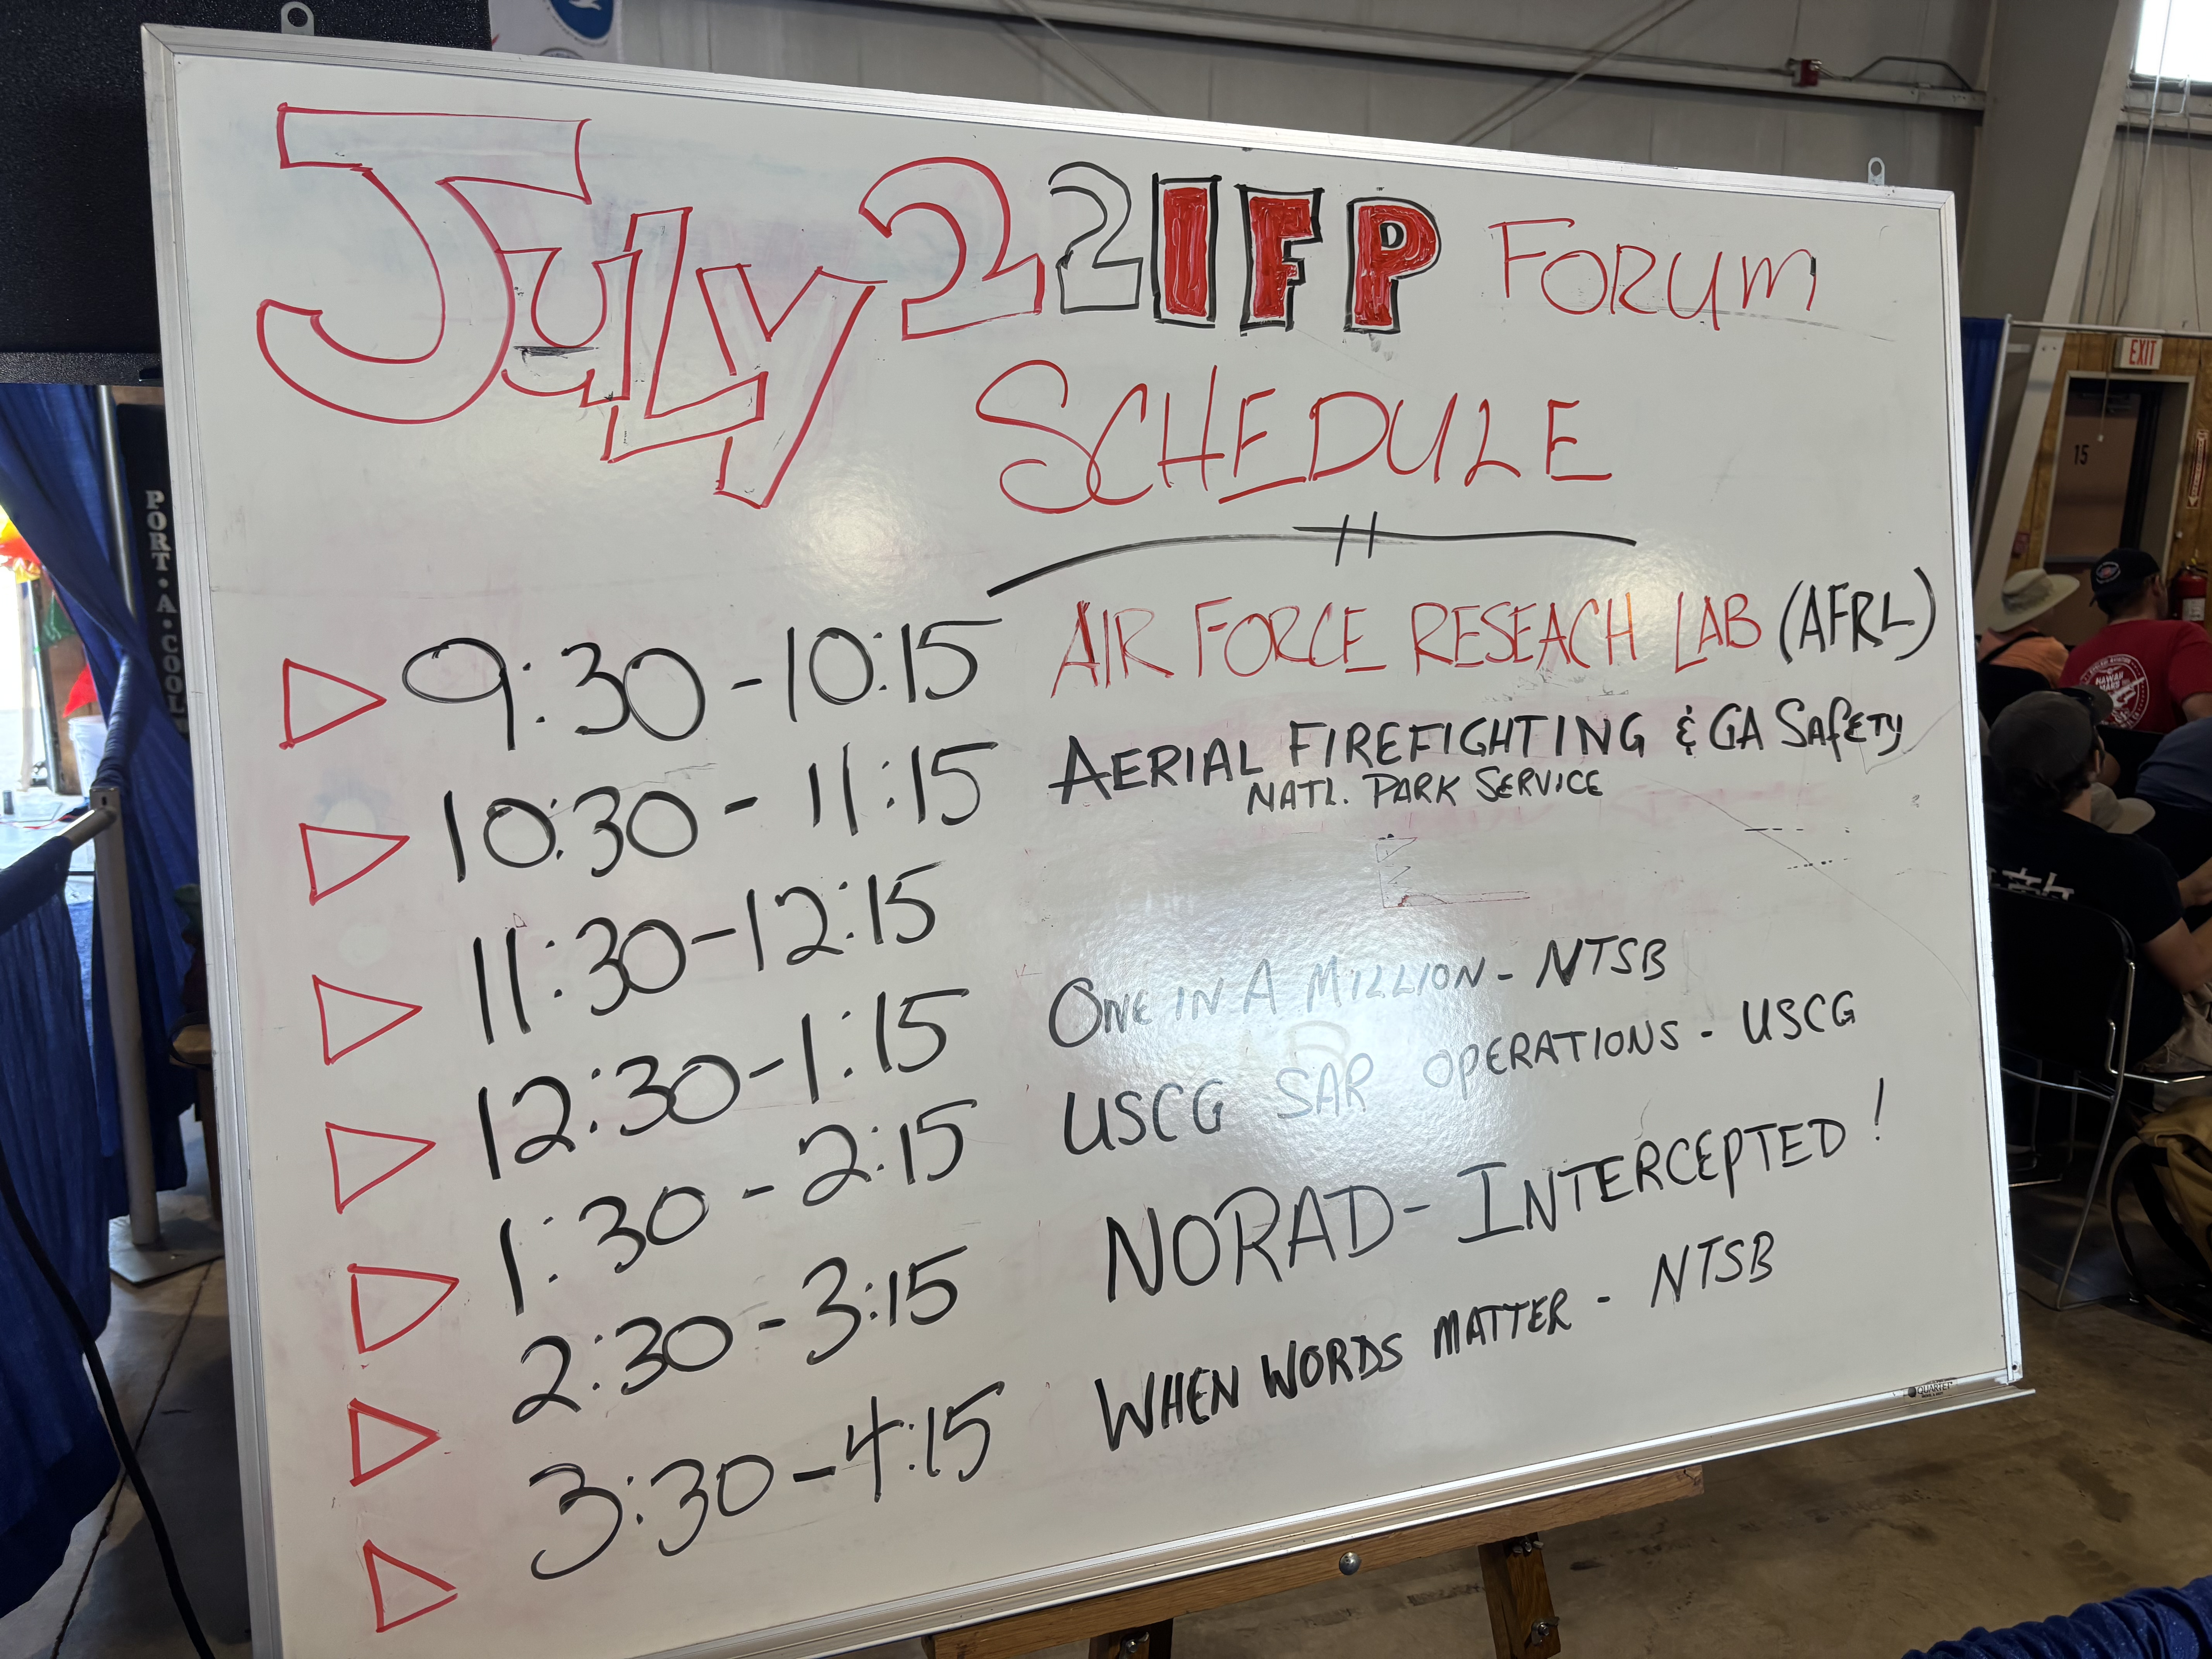 July 22 IFP FORUM
SCHEDULE
9:30 - 10:15 AIR FORCE RESEACH LAB (AFRL)
10:30 - 11:15 AERIAL FIREFIGHTING & GA SAFETY
NATL. PARK SERVICE
11:30 - 12:15
12:30 - 1:15 ONE IN A MILLION - NTSB
1:30 - 2:15 USCG SAR OPERATIONS - USCG
2:30 - 3:15 NORAD - INTERCEPTED!
3:30 - 4:15 WHEN WORDS MATTER - NTSB
QUARTET
PORT • A • COOL
EXIT
15
HAWAII
MARS